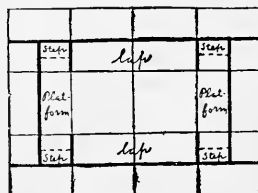 Step Step
Plat-
form
Plat-
form
Step Step